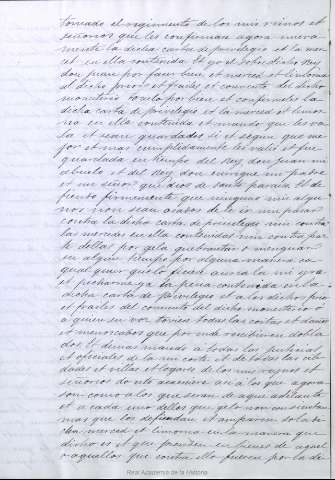 tomado el regimiento de los mis reinos et
señorios que les confirmase agora nueva
mente la dicha carta de privilegio et la mer
cet en ella contenida. Et yo el sobredicho Rey
don juan por faser bien et merced et limosna
al dicho prior et frailes et convento del dicho
monesterio tovelo por bien et confirmoles la
dicha carta de privilegio et la merced et limos
na en ella contenida et mando que les va
la et sean guardadas si et segun que me
jor et mas complidamente les valio et fue
guardada en tiempo del Rey don Juan mi
abuelo et del Rey don enrique mi padre
et mi señor que dios de santo paraiso. Et de
fiendo firmemente que ninguno nin algu
nos non sean osados de le ir nin pasar
contra la dicha carta de privilegio nin contra
las mercedes en ella contenidas nin contra par
te dellas por gela quebrantar o menguar
en algun tiempo por alguna manera ca
qual quier que lo ficiese avria la mi yra
et pecharme ya la pena contenida en la
dicha carta de privilegio et a los dichos prior
et frailes del convento del dicho monesterio o
a quien su voz toviese todas las costas et daños
et menoscabos que por ende recibiesen dobla
dos. Et demas mando a todas las justicias
et oficiales de la mi corte et de todas las cib
dades et villas et logares de los mis reynos et
señorios do esto acaesciere asi a los que agora
son como a los que seran de aqui adelante
et a cada uno dellos que gelo non consientan
mas que los defiendan et amparen con la di
cha merced et limosna en la manera que
dicha es et que prenden en bienes de aquel
o aquellos que contra ello fueren por la di
Real Academia de la Historia